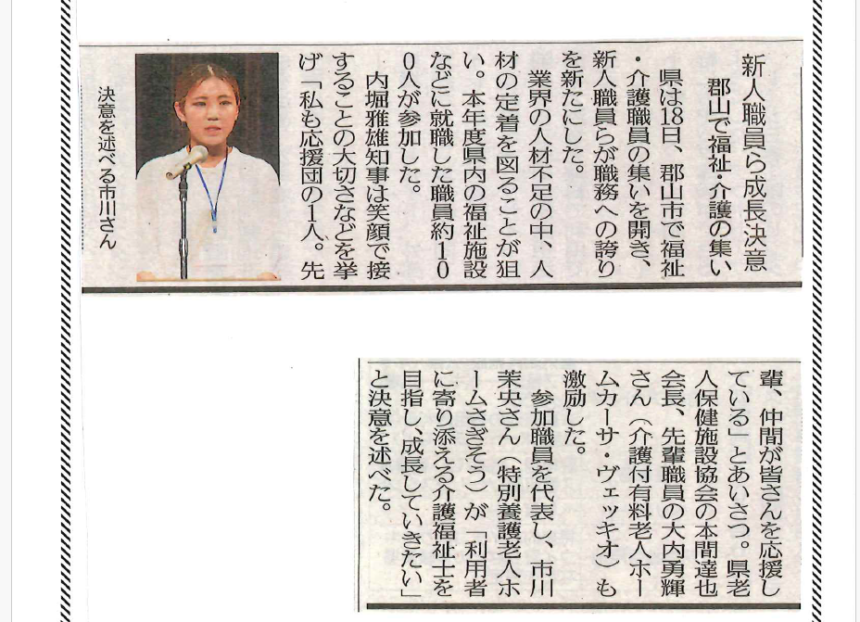 新人職員ら成長決意
郡山で福祉・介護の集い
県は18日、郡山市で福祉
・介護職員の集いを開き、
新人職員らが職務への誇り
を新たにした。
業界の人材不足の中、人
材の定着を図ることが狙
い。本年度県内の福祉施設
などに就職した職員約10
0人が参加した。
内堀雅雄知事は笑顔で接
することの大切さなどを挙
げ「私も応援団の1人。先
決意を述べる市川さん
輩、仲間が皆さんを応援し
ている」とあいさつ。県老
人保健施設協会の本間達也
会長、先輩職員の大内勇輝
さん（介護付有料老人ホー
ムカーサ・ヴェッキオ）も
激励した。
参加職員を代表し、市川
茉央さん（特別養護老人ホ
ームさぎそう）が「利用者
に寄り添える介護福祉士を
目指し、成長していきたい」
と決意を述べた。